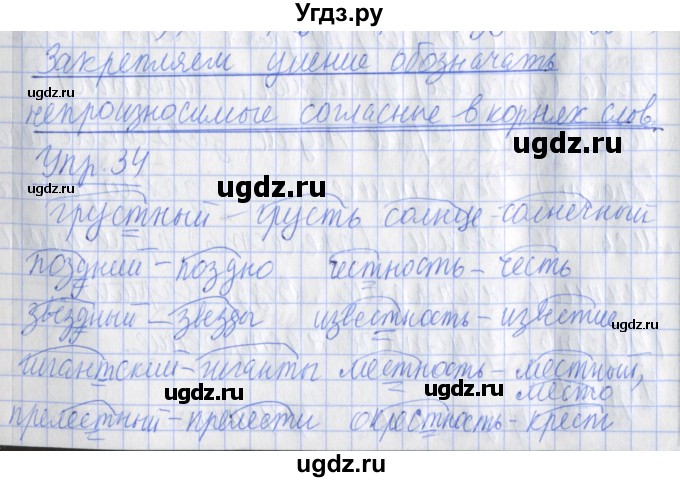 Угдз.ру
Закрепляем умение обозначать
ugdz.ru
непроизносимые согласные в корнях слов.
ugdz.ru ugdz.ru
Упр. 34
ugdz.ru ugdz.ru
грустный - грусть солнце - солнечный
поздний - поздно честность - честь
ugdz.ru ugdz.ru
звёздный - звёзды известность - известие
ugdz.ru ugdz.ru
гигантский - гиганты местность - местный,
ugdz.ru ugdz.ru
место
прелестный - прелести окрестность - крест
ugdz.ru